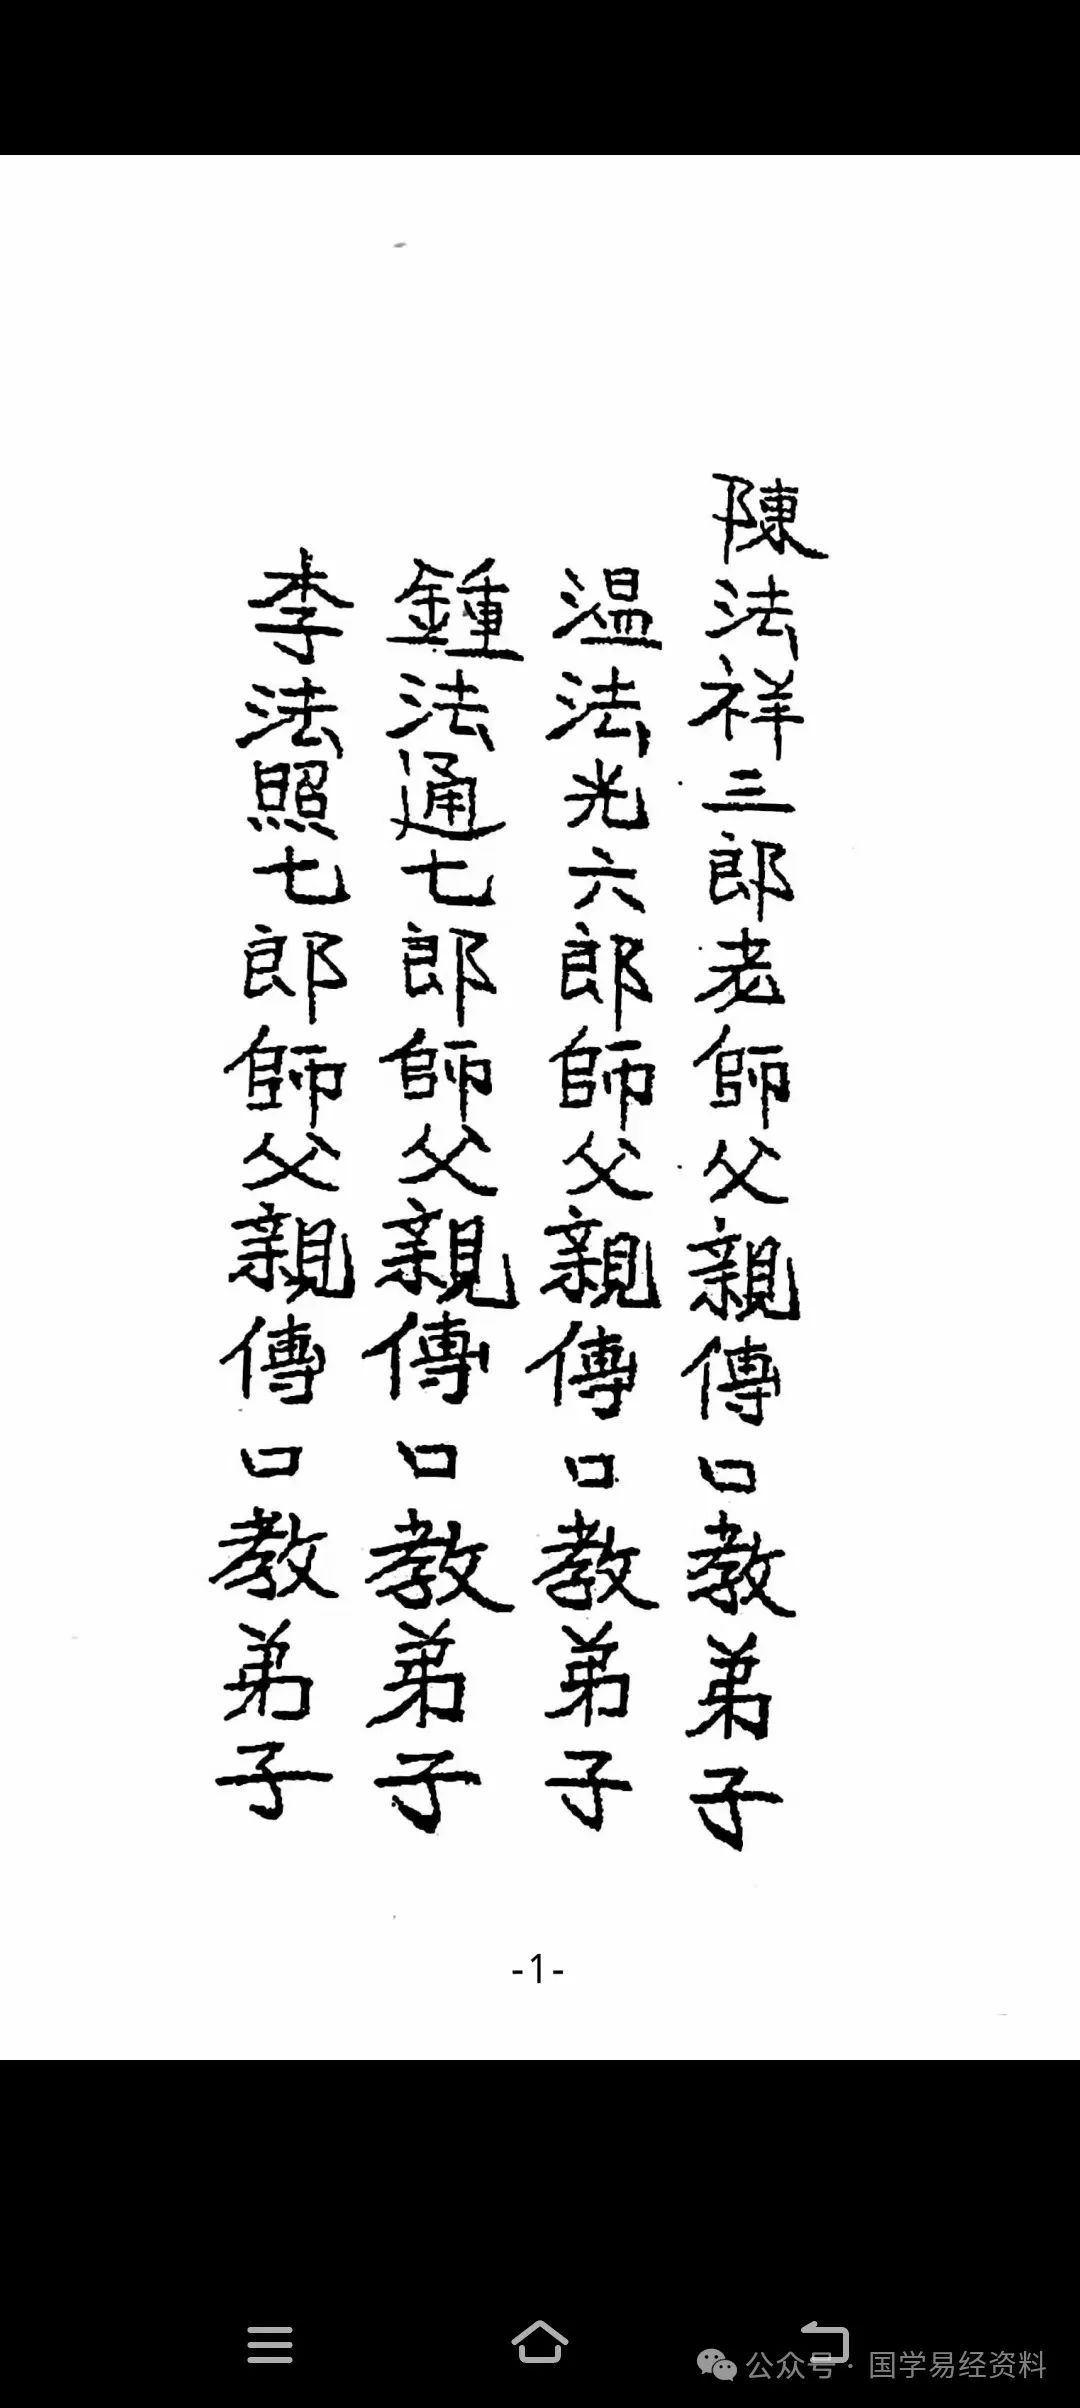 陳法祥三郎老師父親傳口教弟子
温法光六郎師父親傳口教弟子
鍾法通七郎師父親傳口教弟子
李法照七郎師父親傳口教弟子
-1-
公众号 · 国学易经资料